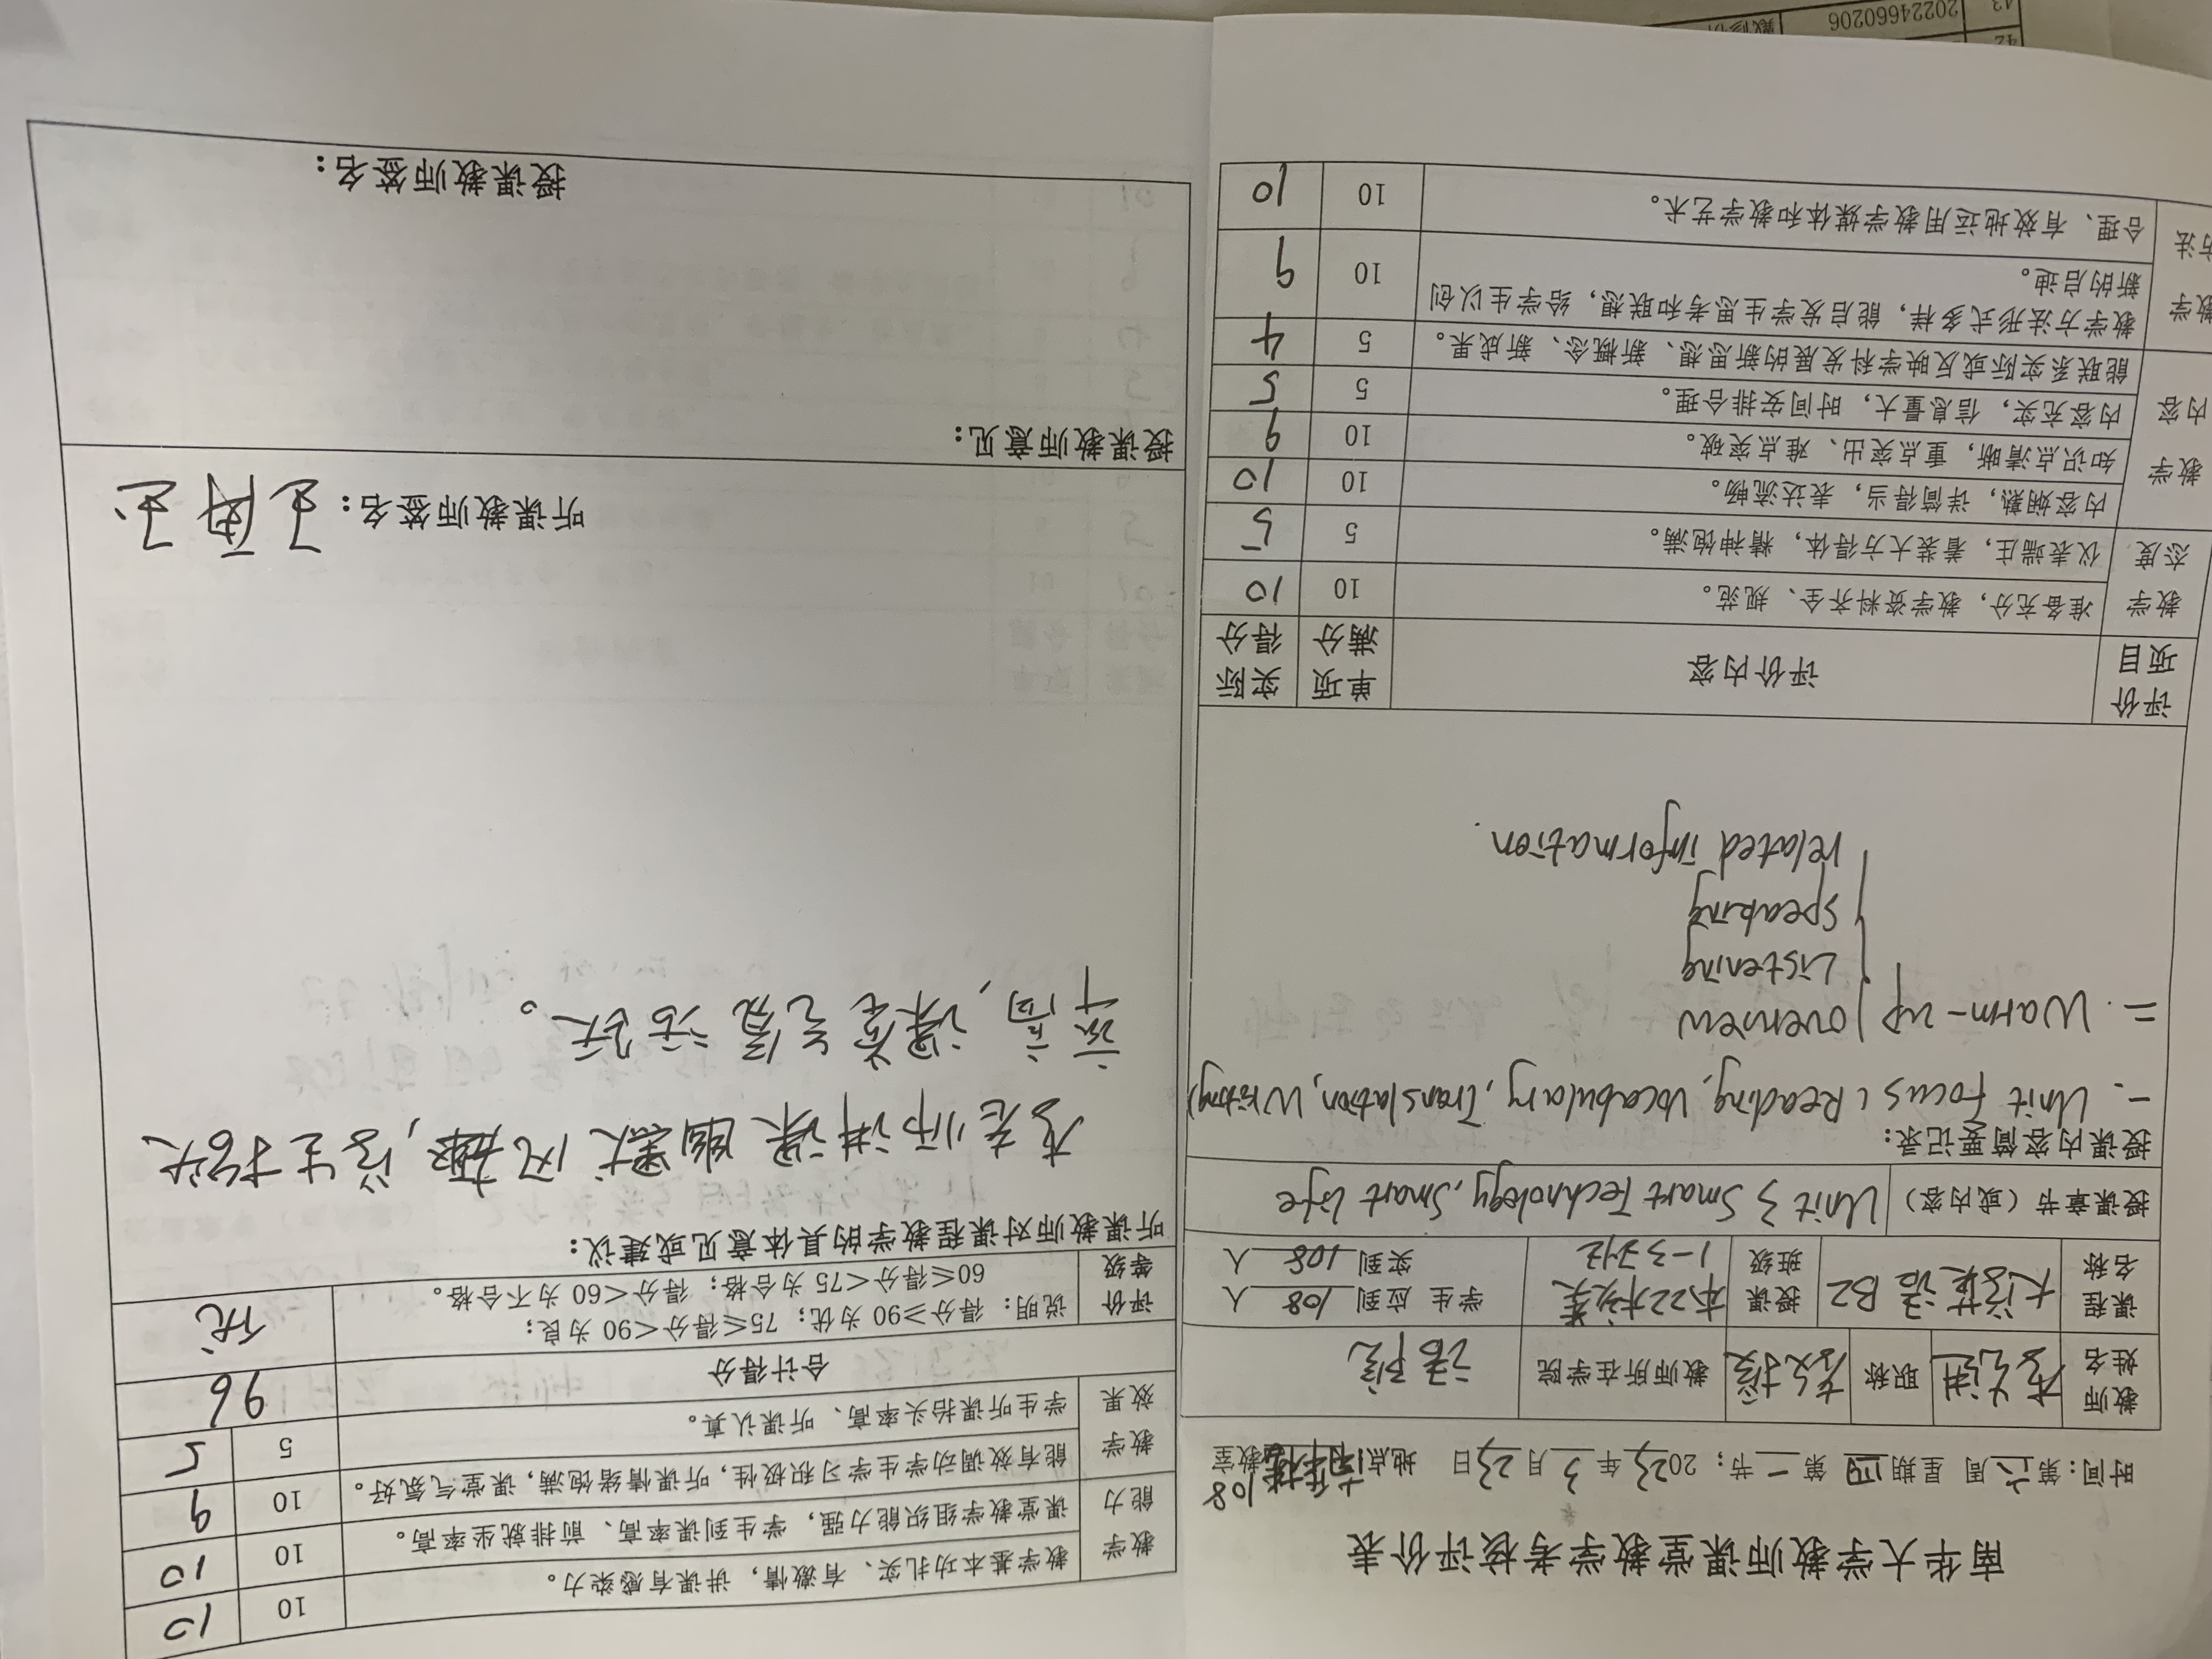 南华大学教师课堂教学考核评价表
时间：第六周 星期四 第一节；2023年3月23日 地点 108教室
教师姓名 职称 教师所在学院 语院
课程名称 大学英语B2 授课班级 本22 1-3班 学生 应到 108 人 实到 108 人
授课章节（或内容） Unit 3 Smart Technology, Smart life
授课内容简要记录：
一. Unit Focus (Reading, Vocabulary, Translation, Writing)
二. Warm-up overview
Listening
Speaking
related information.
评价项目 评价内容 单项满分 实际得分
教学态度 准备充分，教学资料齐全、规范。 10 10
仪表端庄，着装大方得体，精神饱满。 5 5
教学内容 内容娴熟，详简得当，表达流畅。 10 10
知识点清晰，重点突出、难点突破。 10 9
内容充实，信息量大，时间安排合理。 5 5
能联系实际或反映学科发展的新思想、新概念、新成果。 5 4
教学方法 教学方法形式多样，能启发学生思考和联想，给学生以创
新的启迪。 10 9
合理、有效地运用教学媒体和教学艺术。 10 10
教学能力 教学基本功扎实、有激情，讲课有感染力。 10 10
课堂教学组织能力强，学生到课率高、前排就坐率高。 10 10
教学效果 能有效调动学生学习积极性，听课情绪饱满，课堂气氛好。 10 9
学生听课抬头率高、听课认真。 5 5
合计得分 96
评价等级 说明：得分≥90 为优；75≤得分<90 为良；
60≤得分<75 为合格；得分<60 为不合格。 优
听课教师对课程教学的具体意见或建议：
李老师讲课幽默风趣，学生抬头
率高，课堂气氛活跃。
听课教师签名：
授课教师意见：
授课教师签名：
43 20224660206
42